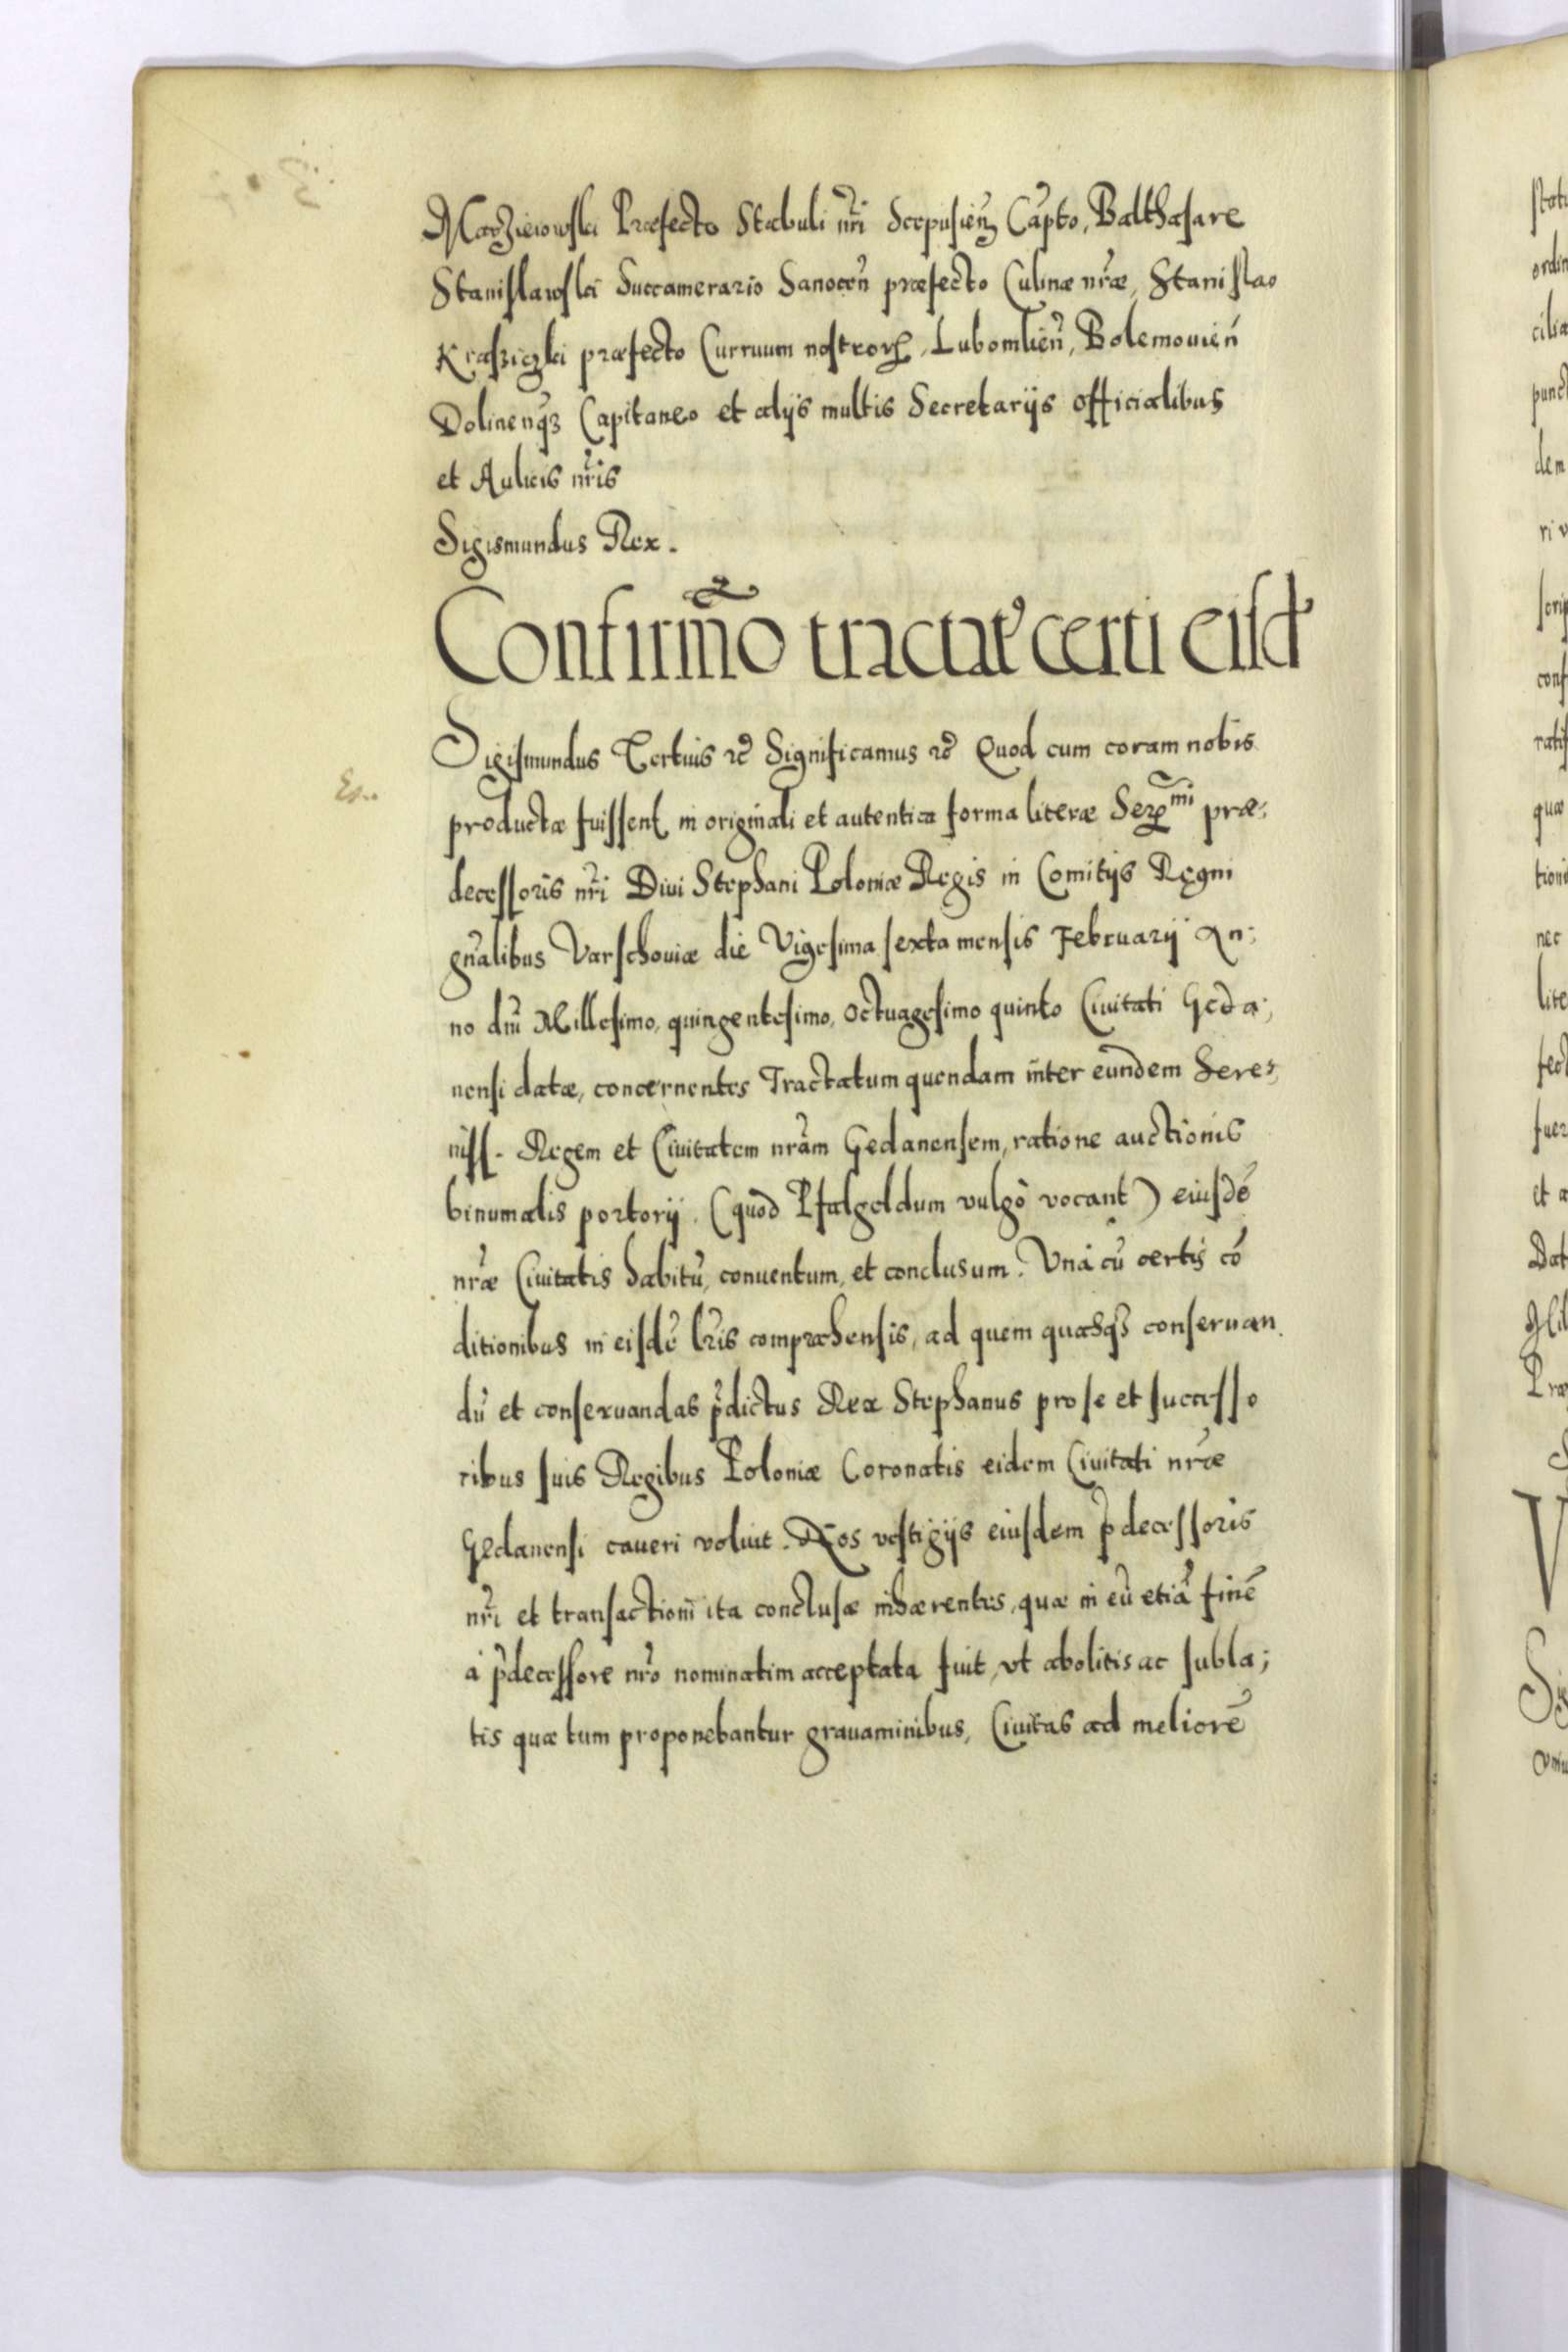 Maczieiowski Præfecto Stabuli nr̃i Scepusieñ Cap̃to, Balthasare
Stanislawski Succamerario Sanoceñ præfecto Culinæ nr̃æ, Stanislao
Krasziczki præfecto Curruum nostrorꝝ, Lubomlieñ, Bolemouień
Dolinenq́ꝫ Capitaneo et alijs multis Secretarijs officialibus
et Aulicis nr̃is
Sigismundus Rex.
Confirm̃o tractat9 certi eisd
Sigismundus Tertius ꝛc̃ Significamus ꝛc̃ Quod cum coram nobis
productæ fuissent in originali et autentica forma literæ Serꝫmi præ:
decessoris nr̃i Diui Stephani Poloniæ Regis in Comitijs Regni
gñalibus Varschouiæ die Vigesima sexta mensis Februarij An:
no dñi Millesimo, quingentesimo, octuagesimo quinto Ciuitati Geda:
nensi datæ, concernentes Tractatum quendam inter eundem Sere:
niss. Regem et Ciuitatem nrãm Gedanensem, ratione auctionis
binumalis portorij. (quod Pfalgeldum vulgò vocant) eiusdẽ
nr̃æ Ciuitatis habitũ, conuentum, et conclusum. Vnà cũ certis cõ
ditionibus in eisdẽ lr̃is compræhensis, ad quem quasq́ꝫ conseruan
dũ et conseruandas p̃dictus Rex Stephanus pro se et successo
ribus suis Regibus Poloniæ Coronatis eidem Ciuitati nr̃æ
Gedanensi caueri voluit. Nos vestigijs eiusdem p̃decessoris
nr̃i et transactioni ita conclusæ inhærentes, quæ in eũ etiã finẽ
à p̃decessore nr̃o nominatim acceptata fuit, vt abolitis ac subla;
tis quæ tum proponebantur grauaminibus, Ciuitas ad meliorẽ